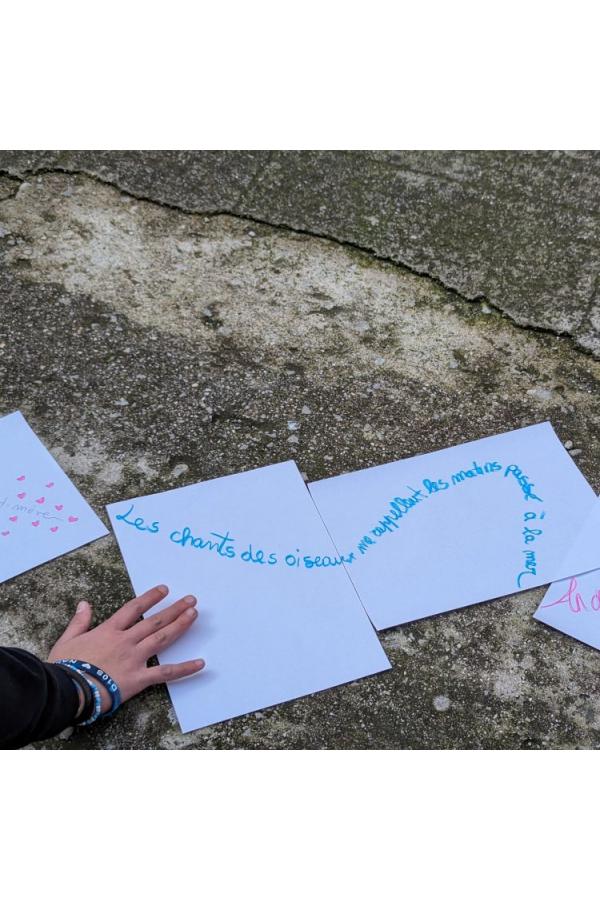 Les chants des oiseaux me rappellent les matins à la mer